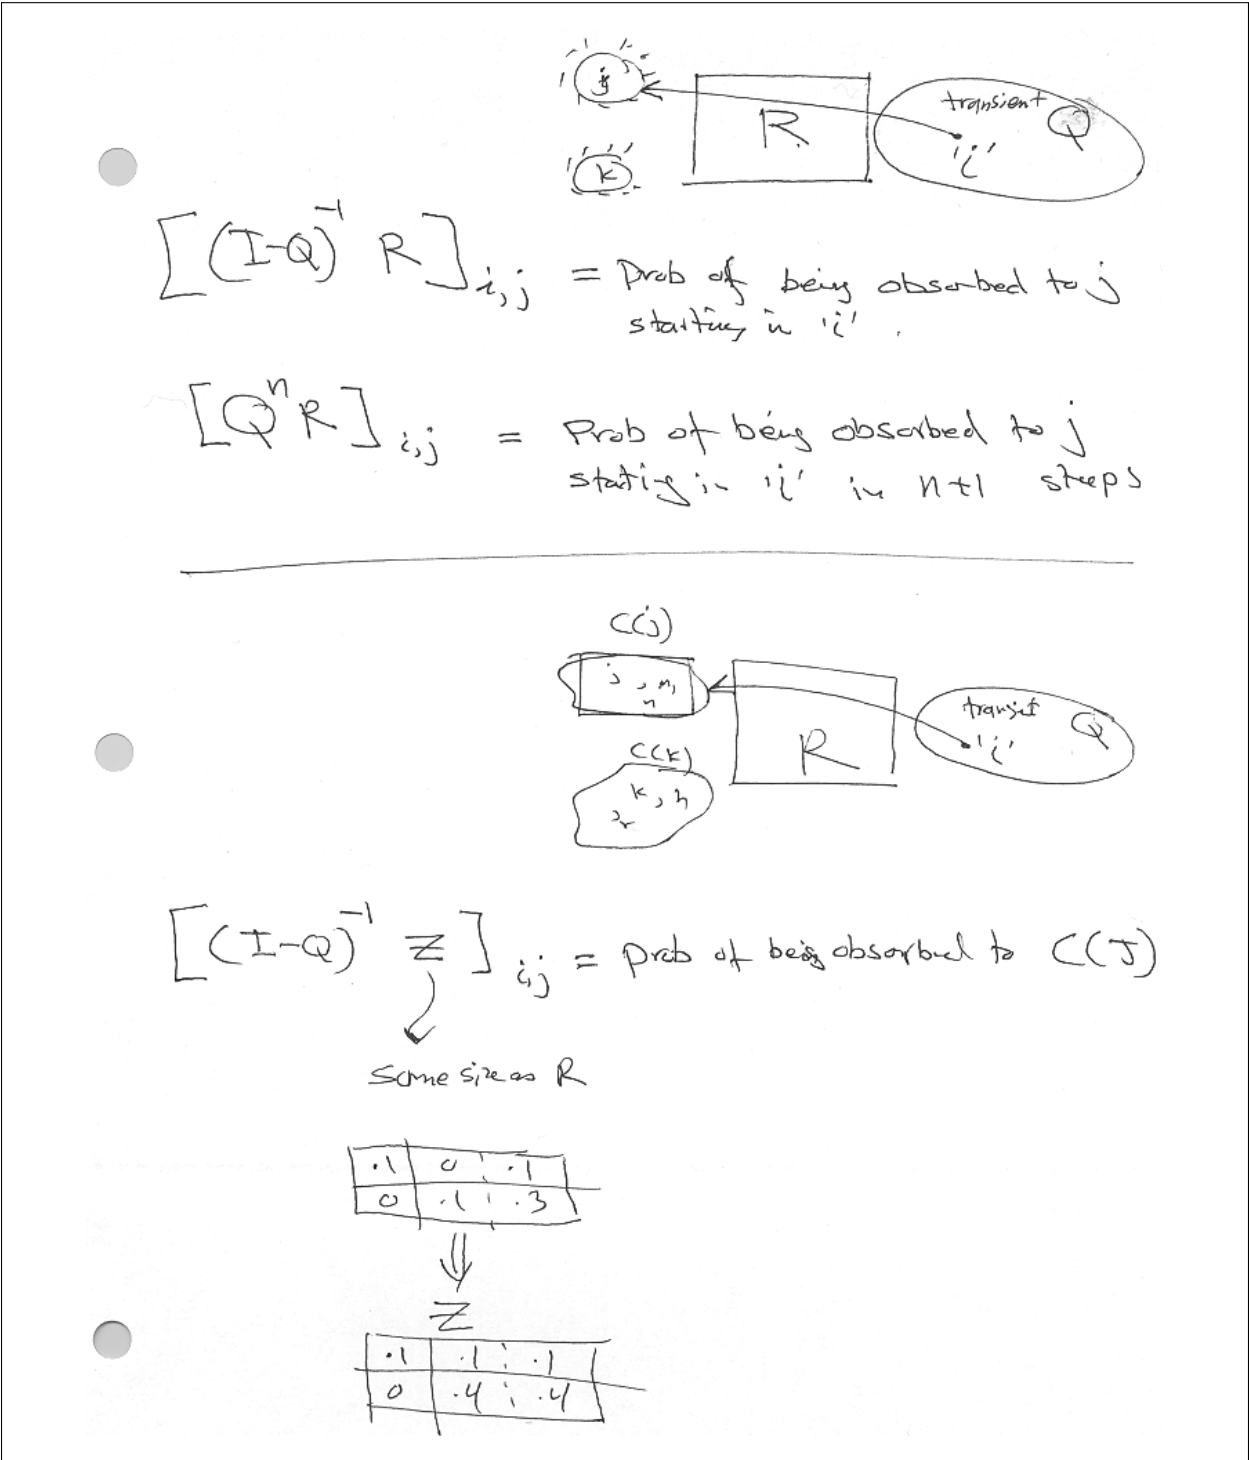 j
transient
Q
R
'i'
k
[(I-Q)⁻¹ R]i,j = Prob of being obsorbed to j
starting in 'i' .
[QⁿR]i,j = Prob of being obsorbed to j
stating in 'i' in n+1 steps
C(j)
j , m,
n
transit
Q
R
'i'
C(k)
k , h
, r
[(I-Q)⁻¹ Z]i,j = prob of being obsorbed to C(J)
Same size as R
.1 0 .1
0 .1 .3
⇓
Z
.1 .1 .1
0 .4 .4